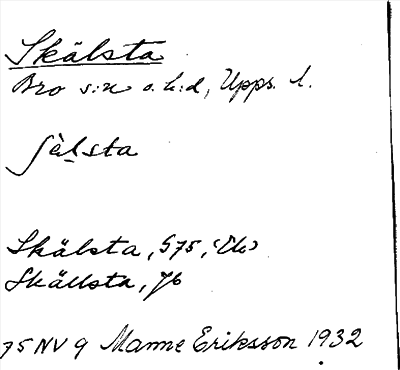 Skälsta
Bro s:n o. h:d, Upps. l.
ʃèl̠sta
Skälsta, G75, (Ek)
Skällsta, Jb
75 NV 9 Manne Eriksson 1932